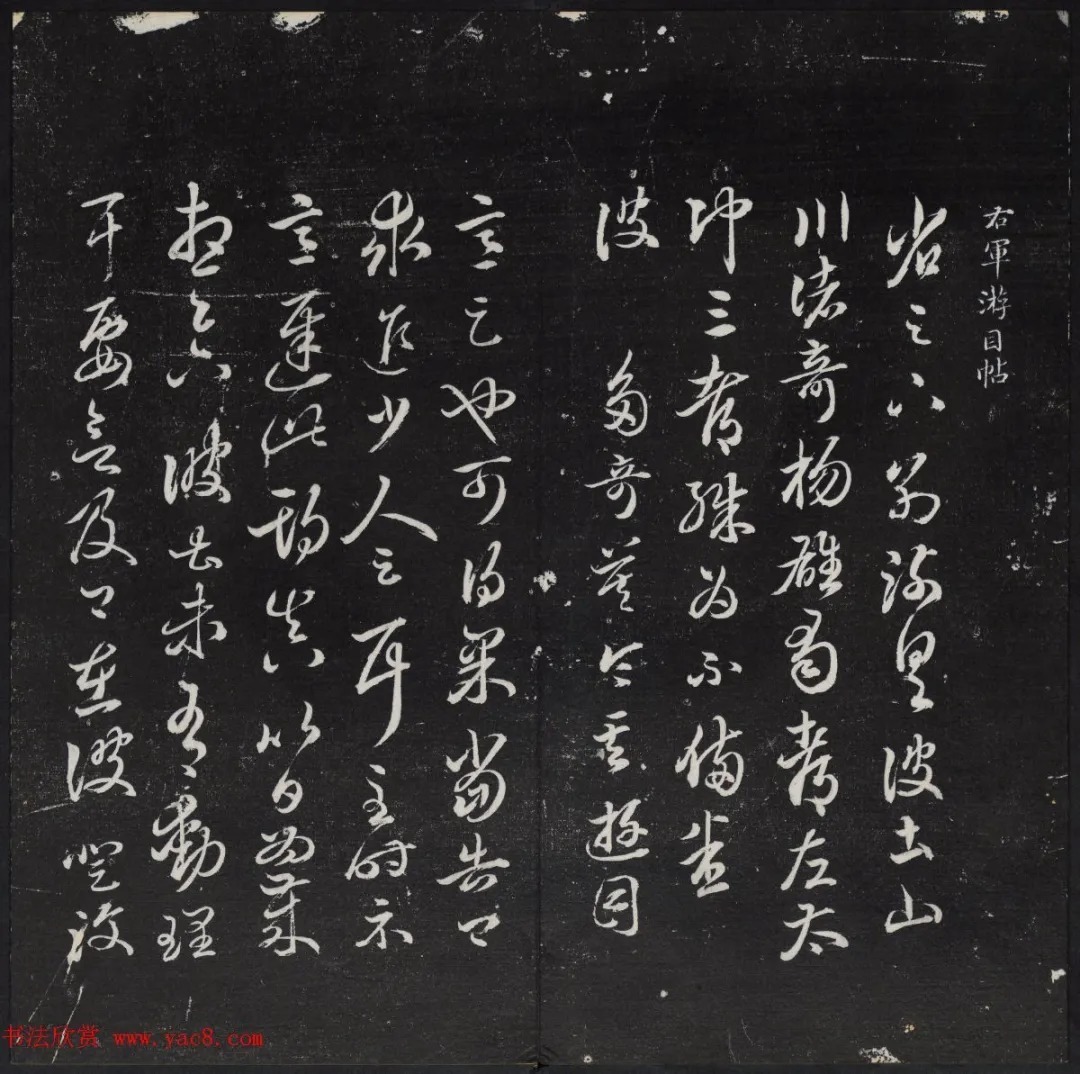 右軍游目帖
省足下別疏具彼土山
川諸奇楊雄蜀都左太
沖三都殊為不備悉
彼 多奇益令其遊目
意足也可得果當告卿
求迎少人足耳至時示
意遲此期真以日為歲
想足下彼土未有動理
耳要欲及卿在彼登汶
书法欣赏 www.yac8.com